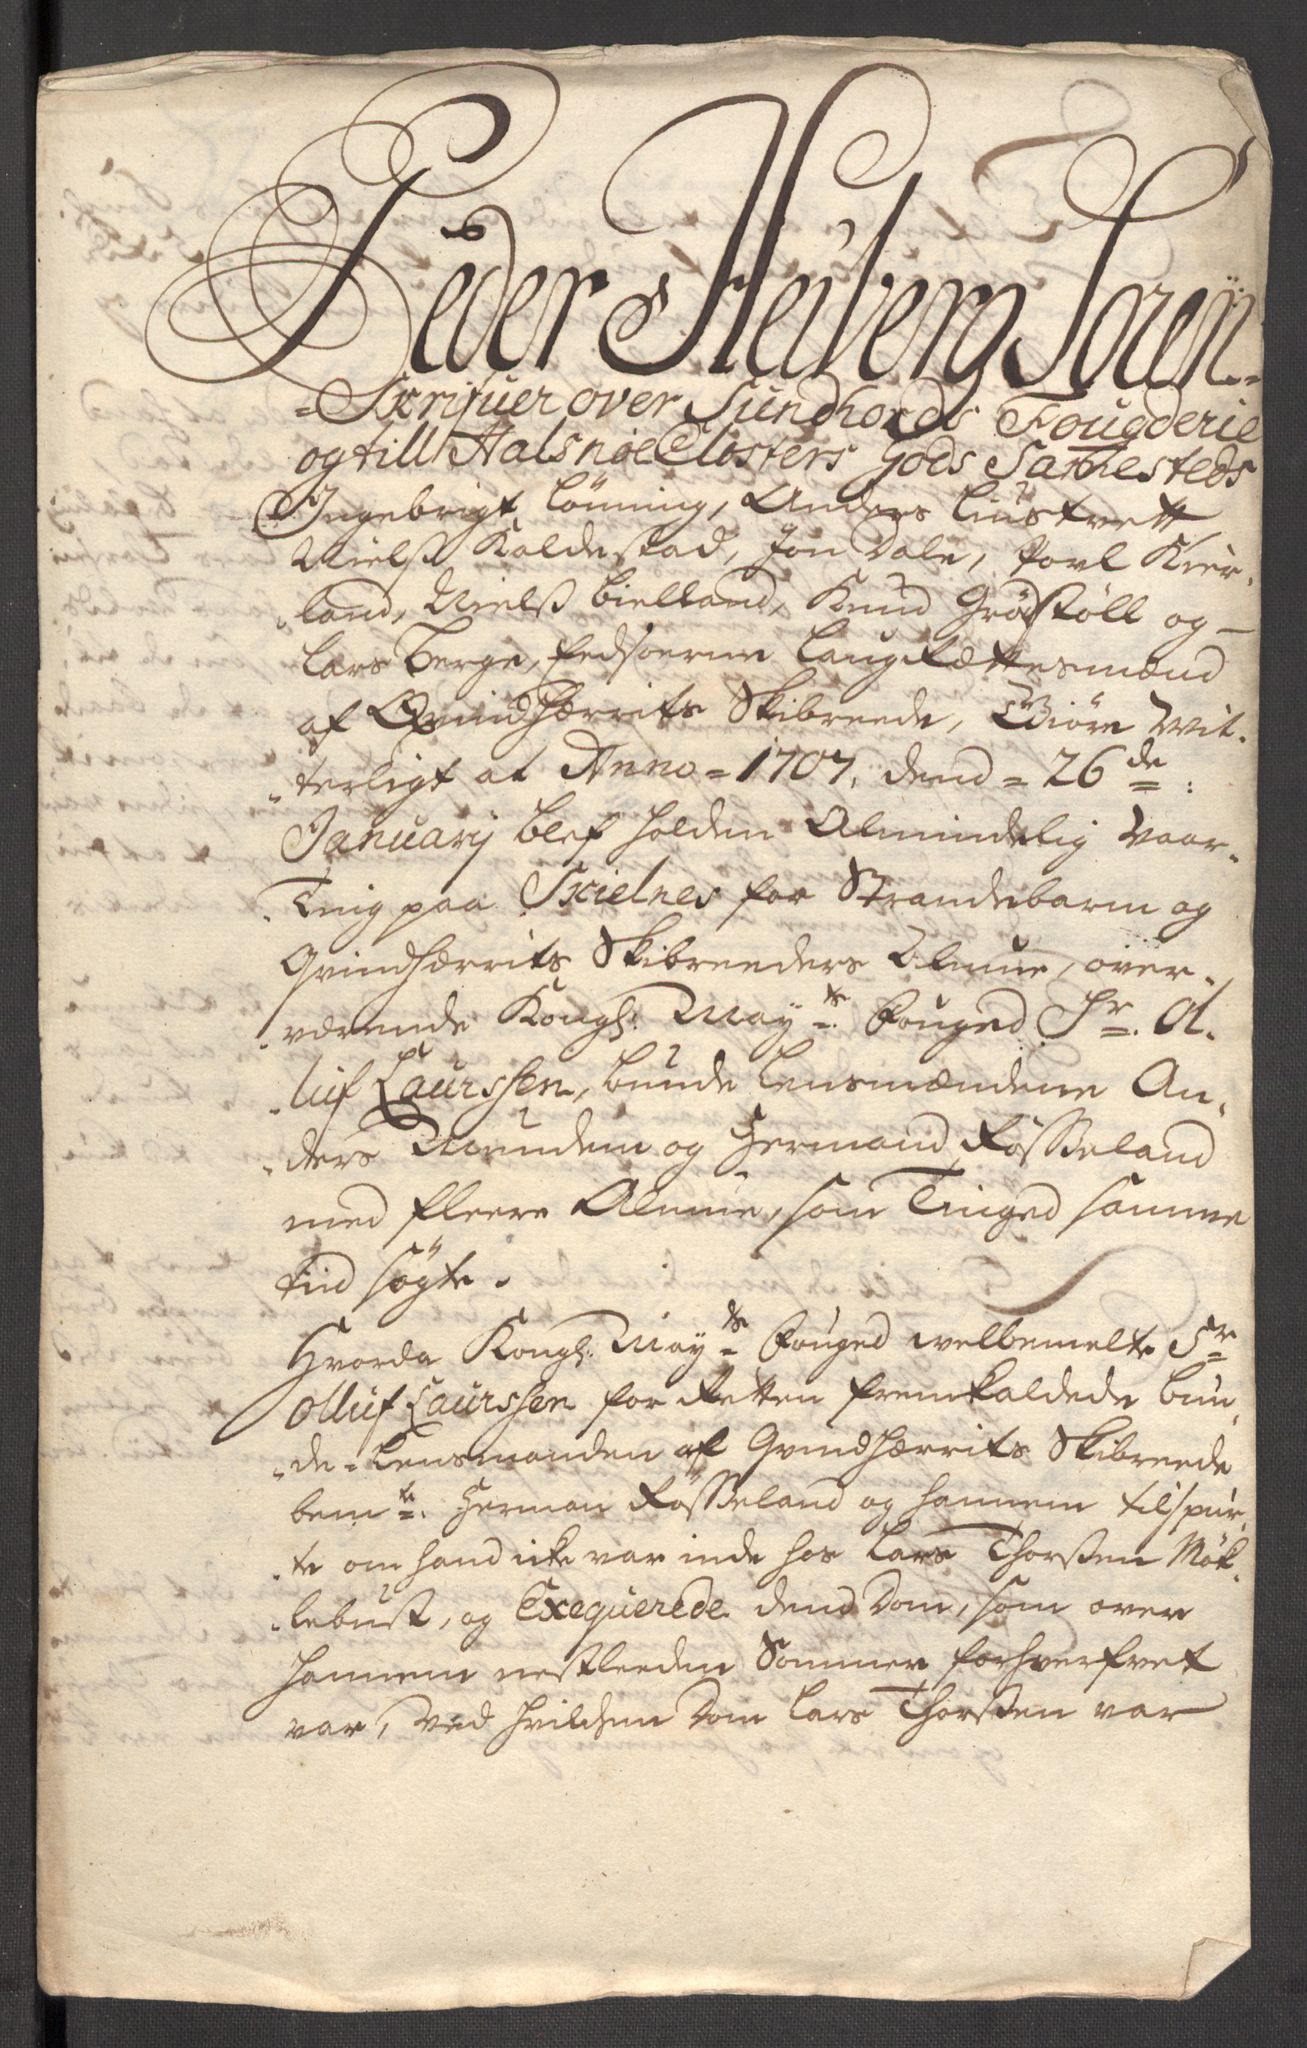 Peder Heiberg Soren-
-Skrifuer over Sundhords Fougderie
og till Halsnöe Closters Gods Sambesteds
Ingebrigt Lönning, Anders Liustvett
Nielss Kaldestad, Jon Dale, Povl Kier-
land, Nielss Bielland, Knud Gröstöll og
Lars Berge, Eedsoerne Laugrættesmænd
af Qvindhærrits Skibreede, Giöre Wit-
terligt at Anno 1707, dend 26de
Januarij blef holden Almindelig Vaar-
Ting paa Skielnes for Strandebarm og
Qvindhærrits Skibreeders Almue, over-
værende Kongl: Mayts Fouged Sr. O-
luf Laurssen, bunde Lensmændene An-
ders Mundem og Hermand Rösseland
med fleere Almue, som Tinged samme
tid sögte.
Hvorda Kongl: Mayts Fouged welbemelte Sr
Olluf Laurssen for Retten fremkaldede bun-
de-Lensmanden af Qvindhærrits Skibreede
bemte. Herman Rösseland og hannem tilspur-
te om hand icke var inde hos Lars Thorssen Mök-
lebust, og Exequerede dend Dom, som over
hannem nestleeden Sommer forhverfvet
var, ved hvilchen Dom Lars Thorssen var